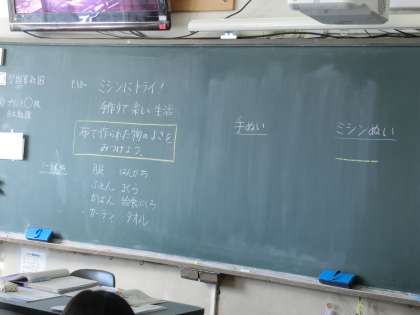 ミシンにトライ!
手作りで楽しい生活
布で作られた物のよさを
みつけよう。
手ぬい
ミシンぬい
服 はんかち
ふとん まくら
かばん 給食ぶくろ
カーテン タオル